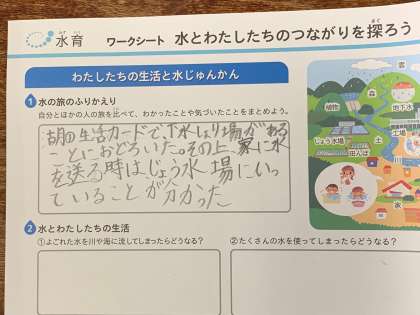 水育
ワークシート 水とわたしたちのつながりを探ろう
わたしたちの生活と水じゅんかん
1 水の旅のふりかえり
自分とほかの人の旅を比べて、わかったことや気づいたことをまとめよう。
朝の生活カードで、下水しょり場がある
ことにおどろいた。その上、家に水
を送る時はじょう水場にいっ
ていることが分かった
2 水とわたしたちの生活
①よごれた水を川や海に流してしまったらどうなる?
②たくさんの水を使ってしまったらどうなる?
雲
植物
森
地下水
じょう水場
土
工場
田んぼ
家